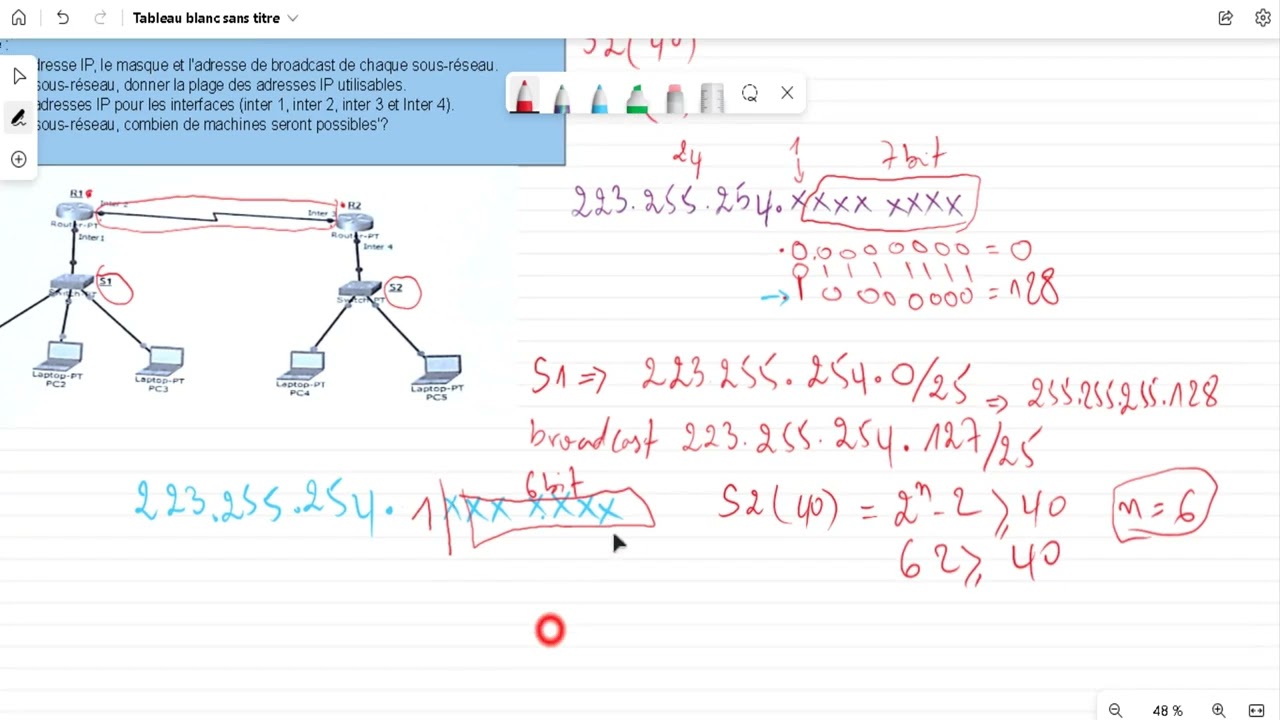 Tableau blanc sans titre
dresse IP, le masque et l'adresse de broadcast de chaque sous-réseau.
sous-réseau, donner la plage des adresses IP utilisables.
adresses IP pour les interfaces (inter 1, inter 2, inter 3 et Inter 4).
sous-réseau, combien de machines seront possibles'?
S2(40)
24 1 7bit
223.255.254.xxxx xxxx
.0.0000000 = 0
0 1 1 1 1 1 1 1
→ 1 0 00 0000 = 128
R1
Inter 2
Router-PT
Inter1
Inter 3
R2
Router-PT
Inter 4
S1
Switch-PT
S2
Switch-PT
Laptop-PT
PC2
Laptop-PT
PC3
Laptop-PT
PC4
Laptop-PT
PC5
S1 => 223.255.254.0/25 => 255.255.255.128
broadcast 223.255.254.127/25
6bit
223.255.254.1|xxx xxxx
S2(40) = 2^n - 2 ⩾ 40 n = 6
62 ⩾ 40
48 %